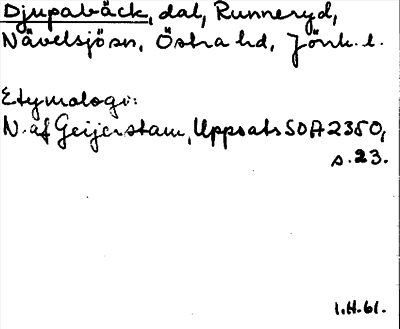 Djupabäck, dal, Runneryd,
Nävelsjösn, Östra hd, Jönk. l.
Etymologi:
N. af Geijerstam, Uppsats SOA 2350,
s. 23.
1.H.61.